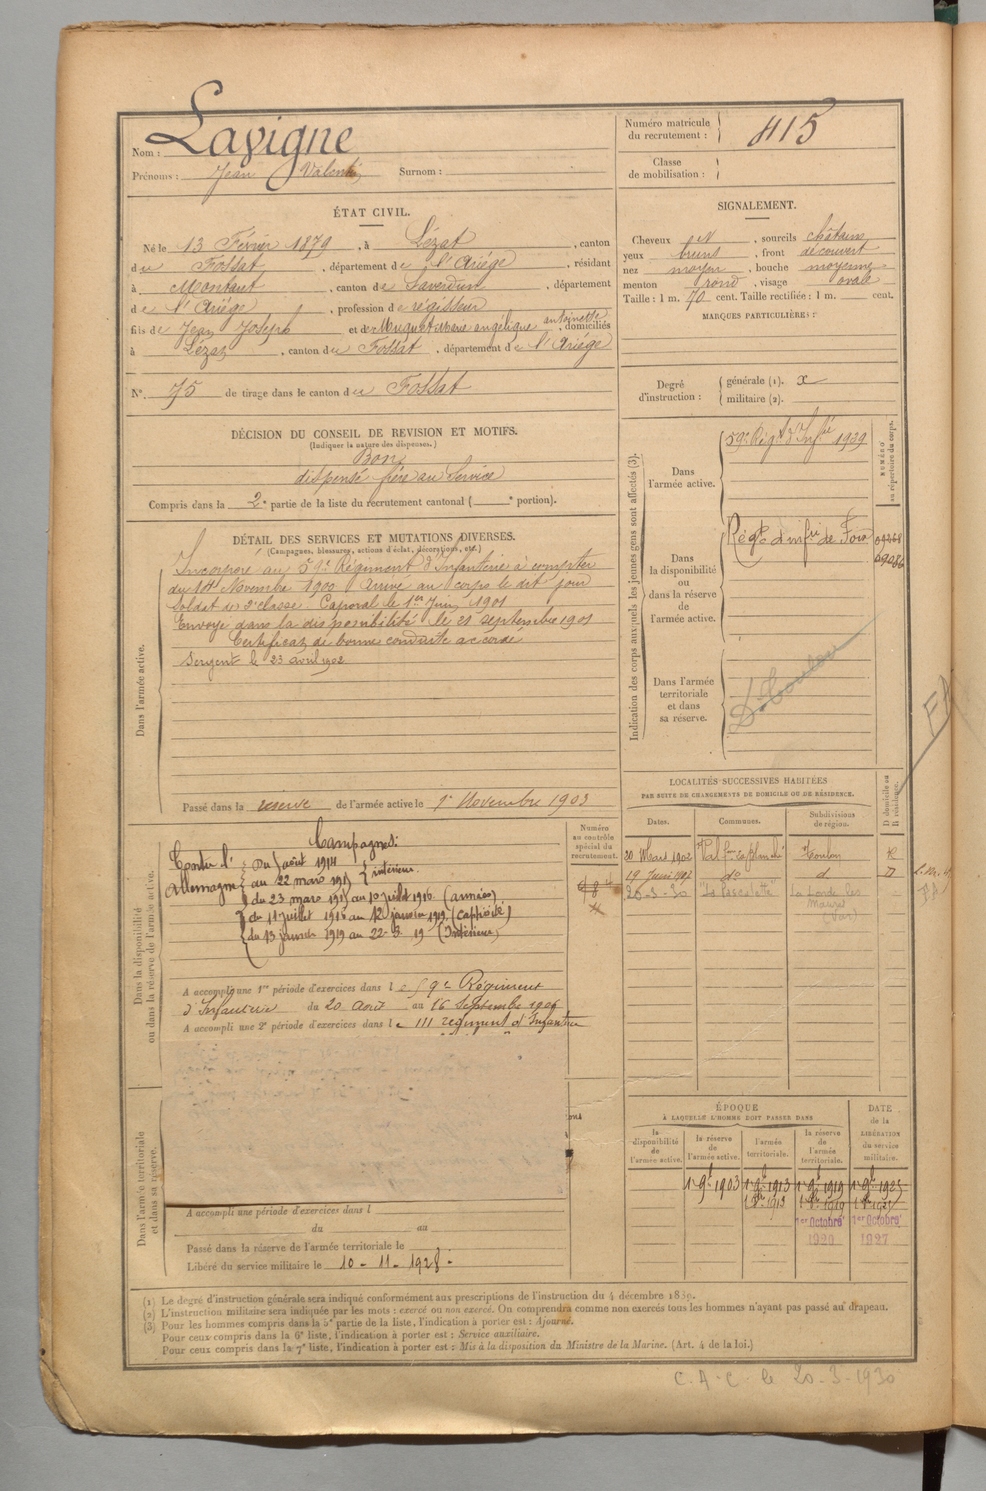 Nom : Lavigne
Prénoms : Jean Valentin Surnom :
Numéro matricule
du recrutement : 415
Classe
de mobilisation :
ÉTAT CIVIL.
Né le 13 Février 1879, à Lézat, canton
du Fossat, département de l'Ariège, résidant
à Montaut, canton de Saverdun, département
de l'Ariège, profession de régisseur
fils de Jean Joseph et de Muquet marie angélique antoinette, domiciliés
à Lézat, canton du Fossat, département de l'Ariège
N° 75 de tirage dans le canton du Fossat
SIGNALEMENT.
Cheveux N, sourcils châtain
yeux bruns, front découvert
nez moyen, bouche moyenne
menton rond, visage ovale
Taille : 1 m. 70 cent. Taille rectifiée : 1 m. cent.
MARQUES PARTICULIÈRES :
Degré
d'instruction :
générale (1). x
militaire (2).
DÉCISION DU CONSEIL DE REVISION ET MOTIFS.
(Indiquer la nature des dispenses.)
Bon
dispensé frère au Service
Compris dans la 2e partie de la liste du recrutement cantonal ( e portion).
DÉTAIL DES SERVICES ET MUTATIONS DIVERSES.
(Campagnes, blessures, actions d'éclat, décorations, etc.)
Dans l'armée active.
Incorporé au 59e Régiment d'Infanterie à compter
du 14 Novembre 1900 Arrivé au corps le dit jour
Soldat de 2e classe. Caporal le 1er Juin 1901
Envoyé dans la disponibilité le 21 septembre 1901
Certificat de bonne conduite accordé
Sergent le 23 avril 1902
Passé dans la réserve de l'armée active le 1er Novembre 1903
Indication des corps auxquels les jeunes gens sont affectés (3).
NUMÉRO
au répertoire du corps.
Dans
l'armée active.
59e Régt d'Infie 1939
Dans
la disponibilité
ou
dans la réserve
de
l'armée active.
Régt d'infie de Foix
Dans l'armée
territoriale
et dans
sa réserve.
Dt Toulon
Dans la disponibilité
ou dans la réserve de l'armée active.
Campagnes:
Contre l'
Allemagne
Du août 1914
au 22 mars 1915 intérieur
du 23 mars 1915 au 10 juillet 1916 (armées)
du 11 juillet 1916 au 12 janvier 1919 (captivité)
du 13 janvier 1919 au 22-3 19 (Intérieur)
A accompli une 1re période d'exercices dans le 59e Régiment
d'Infanterie du 20 Août au 16 Septembre 1906
A accompli une 2e période d'exercices dans le 111 régiment d'Infanterie
Numéro
au contrôle
spécial du
recrutement.
LOCALITÉS SUCCESSIVES HABITÉES
PAR SUITE DE CHANGEMENTS DE DOMICILE OU DE RÉSIDENCE.
D domicile ou
R résidence.
Dates. Communes. Subdivisions
de région.
20 Mars 1902 Toulon R
19 Juin 1907 do d D
20-3-30 "La Pascalette" La Londe les
Maures
(Var)
Dans l'armée territoriale
et dans sa réserve.
A accompli une période d'exercices dans l
du au
Passé dans la réserve de l'armée territoriale le
Libéré du service militaire le 10-11-1928.
ÉPOQUE
À LAQUELLE L'HOMME DOIT PASSER DANS
DATE
de la
LIBÉRATION
du service
militaire.
la
disponibilité
de
l'armée active.
la réserve
de
l'armée active.
l'armée
territoriale.
la réserve
de
l'armée
territoriale.
1er 9bre 1903 1er 9bre 1913 1er 9bre 1919 1er 9bre 1925
1er Octobre 1er Octobre
1920 1927
(1) Le degré d'instruction générale sera indiqué conformément aux prescriptions de l'instruction du 4 décembre 1889.
(2) L'instruction militaire sera indiquée par les mots : exercé ou non exercé. On comprendra comme non exercés tous les hommes n'ayant pas passé au drapeau.
(3) Pour les hommes compris dans la 5e partie de la liste, l'indication à porter est : Ajourné.
Pour ceux compris dans la 6e liste, l'indication à porter est : Service auxiliaire.
Pour ceux compris dans la 7e liste, l'indication à porter est : Mis à la disposition du Ministre de la Marine. (Art. 4 de la loi.)
C.A.C. le 20-3-1930